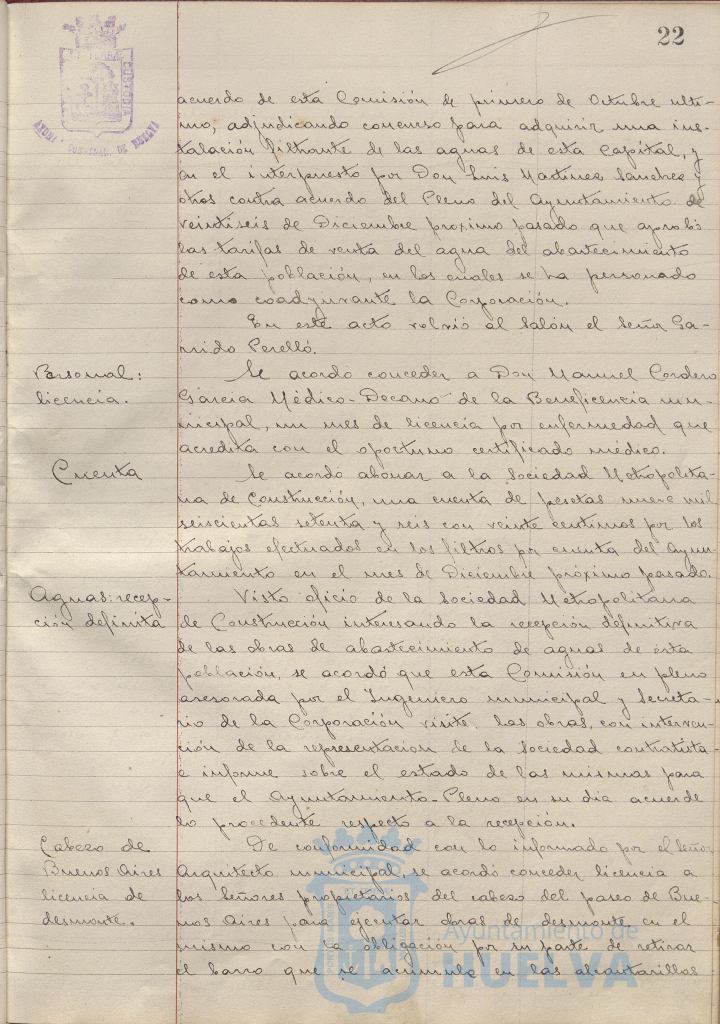 22
AYUNT. CONSTNAL. DE HUELVA
acuerdo de esta Comisión de primero de Octubre ulti-
mo, adjudicando concurso para adquirir una ins-
talación filtrante de las aguas de esta Capital, y
en el interpuesto por Don Luis Martinez Sanchez y
otros contra acuerdo del Pleno del Ayuntamiento de
veintiseis de Diciembre proximo pasado que aprobó
las tarifas de venta del agua del abastecimiento
de esta población, en los cuales se ha personado
como coadyuvante la Corporación.
En este acto volvió al salón el señor Ga-
rrido Perelló.
Personal:
licencia.
Se acordó conceder a Don Manuel Cordero
García Médico-Decano de la Beneficencia mu-
nicipal, un mes de licencia por enfermedad que
acredita con el oportuno certificado médico.
Cuenta
Se acordó abonar a la Sociedad Metropolita-
na de Construcción, una cuenta de pesetas nueve mil
seiscientas setenta y seis con veinte centimos por los
trabajos efectuados en los filtros por cuenta del Ayun-
tamiento en el mes de Diciembre próximo pasado.
Aguas: recep-
ción definita
Visto oficio de la Sociedad Metropolitana
de Construcción interesando la recepción definitiva
de las obras de abastecimiento de aguas de ésta
población, se acordó que esta Comisión en pleno
asesorada por el Ingeniero municipal y Secreta-
rio de la Corporación visite las obras, con interven-
ción de la representacion de la Sociedad contratista
e informe sobre el estado de las mismas para
que el Ayuntamiento-Pleno en su dia acuerde
lo procedente respecto a la recepción.
Cabezo de
Buenos Aires
licencia de
desmonte.
De conformidad con lo informado por el señor
Arquitecto municipal, se acordó conceder licencia a
los señores propietarios del cabezo del paseo de Bue-
nos Aires para ejecutar obras de desmonte en el
mismo con la obligación por su parte de retirar
el barro que se acumule en las alcantarillas
Ayuntamiento de
HUELVA